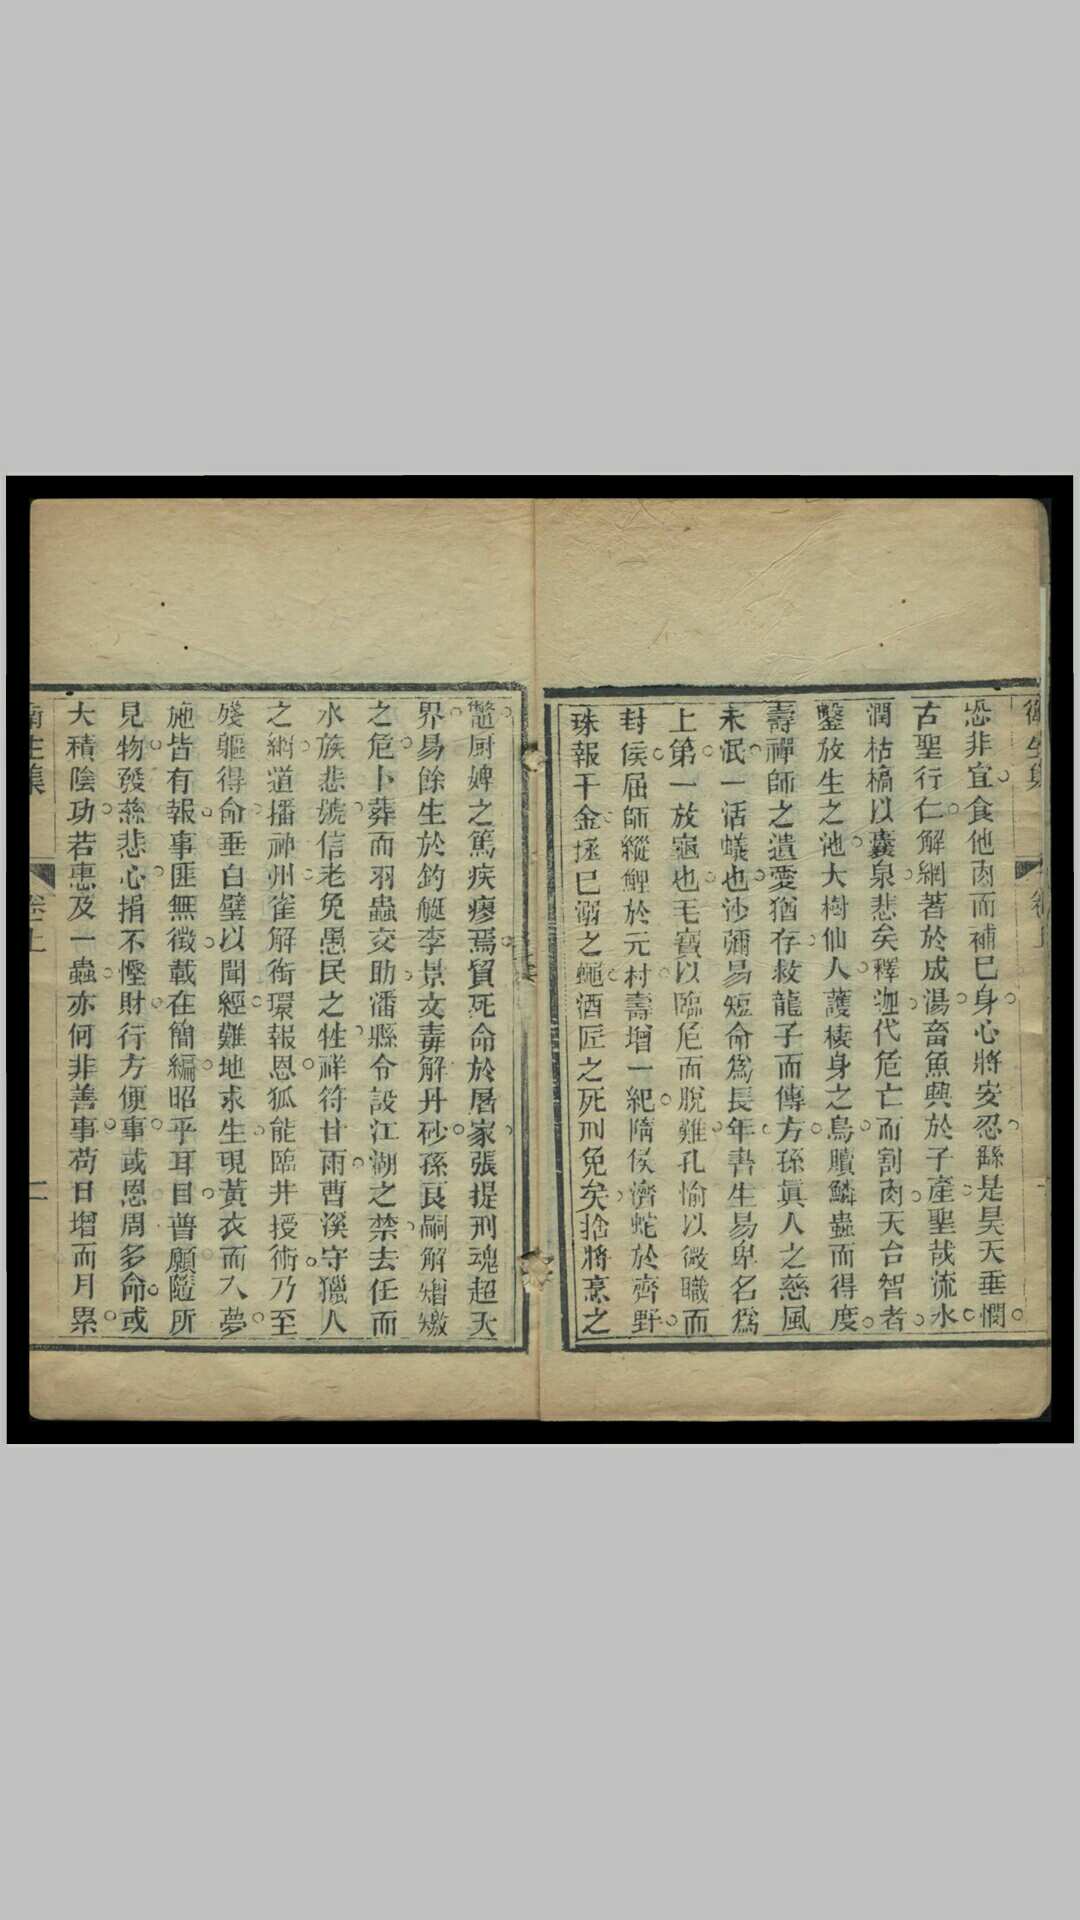 衞生集 卷上
恐非宜食他肉而補巳身心將安忍繇是昊天垂憫
古聖行仁解網著於成湯畜魚興於子產聖哉流水
潤枯槁以囊泉悲矣釋迦代危亡而割肉天台智者
鑿放生之池大樹仙人護棲身之鳥贖鱗蟲而得度
壽禪師之遺愛猶存救龍子而傳方孫眞人之慈風
未泯一活蟻也沙彌易短命爲長年書生易卑名爲
上第一放龜也毛寶以臨危而脫難孔愉以微職而
封侯屈師縱鯉於元村壽增一紀隋侯濟蛇於齊野
珠報千金拯巳溺之蠅酒匠之死刑免矣捨將烹之
鼈厨婢之篤疾瘳焉貿死命於屠家張提刑魂超天
界易餘生於釣艇李景文毒解丹砂孫良嗣解矰繳
之危卜葬而羽蟲交助潘縣令設江湖之禁去任而
水族悲號信老免愚民之牲祥符甘雨曹溪守獵人
之網道播神州雀解銜環報恩狐能臨井授術乃至
殘軀得命垂白璧以聞經難地求生現黃衣而入夢
施皆有報事匪無徵載在簡編昭乎耳目普願隨所
見物發慈悲心捐不慳財行方便事或恩周多命或
大積陰功若惠及一蟲亦何非善事苟日增而月累
生集 卷上 二